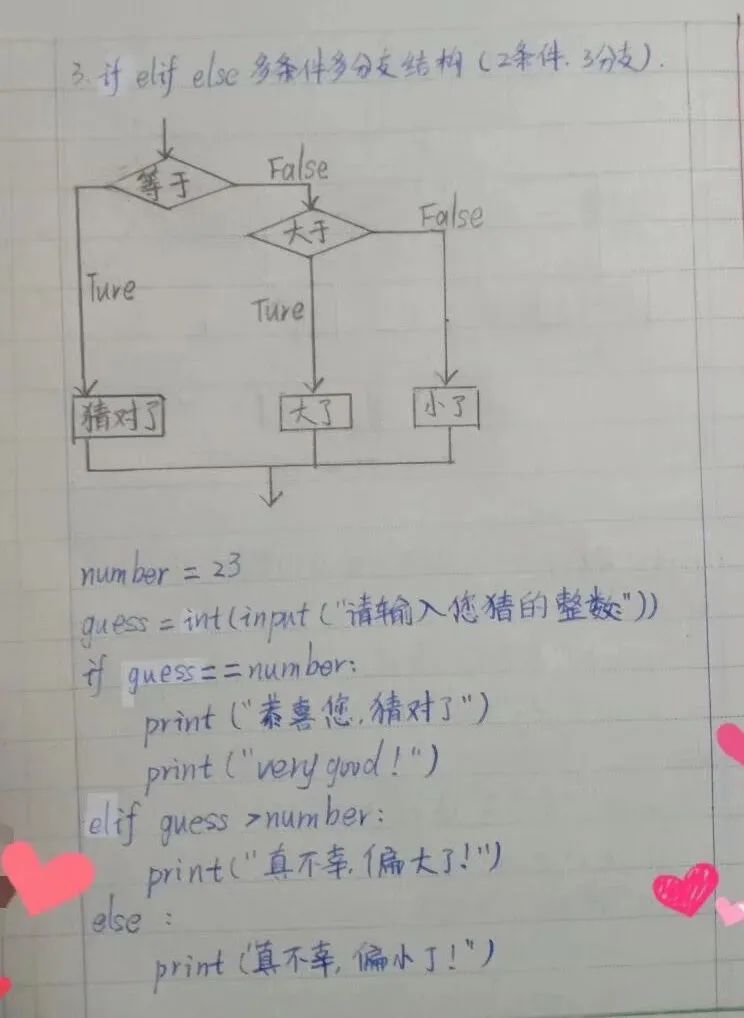 3. if elif else 多条件多分支结构 (2条件. 3分支).
等于 False
大于 False
Ture
Ture
猜对了 大了 小了
number = 23
guess = int(input("请输入您猜的整数:"))
if guess == number:
print ("恭喜您,猜对了")
print ("very good!")
elif guess >number:
print("真不幸,偏大了!")
else :
print ("真不幸,偏小了!")